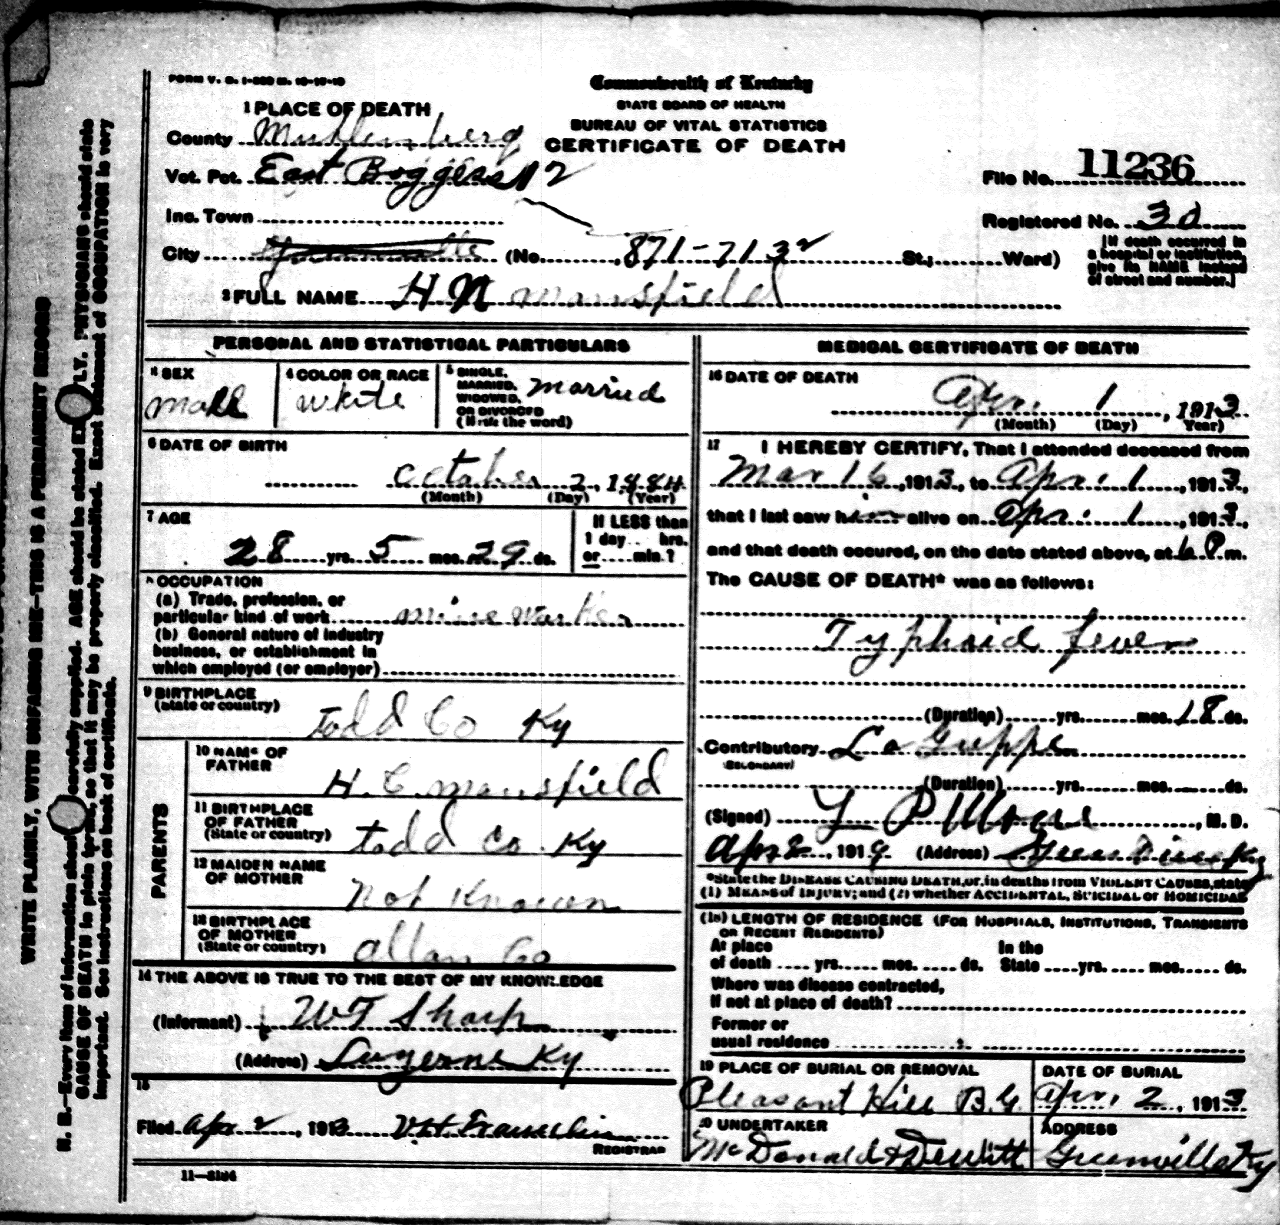 FORM V. S. 1-
Commonwealth of Kentucky
STATE BOARD OF HEALTH
BUREAU OF VITAL STATISTICS
CERTIFICATE OF DEATH
1 PLACE OF DEATH
County Muhlenberg
Vot. Pct. East Boggess # 2
Inc. Town
City Greenville (No. 871-713 2 St.; Ward)
File No. 11236
Registered No. 30
[If death occurred in
a hospital or institution,
give its NAME instead
of street and number.]
2 FULL NAME H N Mansfield
PERSONAL AND STATISTICAL PARTICULARS
3 SEX
Male
4 COLOR OR RACE
White
5 SINGLE,
MARRIED,
WIDOWED,
OR DIVORCED
(Write the word)
Married
6 DATE OF BIRTH
October 2, 1884
(Month) (Day) (Year)
7 AGE
28 yrs. 5 mos. 29 ds.
If LESS than
1 day hrs.
or min.?
8 OCCUPATION
(a) Trade, profession, or
particular kind of work mine worker
(b) General nature of industry
business, or establishment in
which employed (or employer)
9 BIRTHPLACE
(State or country)
Todd Co Ky
PARENTS
10 NAME OF
FATHER
H. C. Mansfield
11 BIRTHPLACE
OF FATHER
(State or country)
Todd Co. Ky
12 MAIDEN NAME
OF MOTHER
Not Known
13 BIRTHPLACE
OF MOTHER
(State or country)
Allan Co
14 THE ABOVE IS TRUE TO THE BEST OF MY KNOWLEDGE
(Informant) WT Sharp
(Address) Luzerne Ky
15
Filed Apr 2, 1913 V.H. Franklin
REGISTRAR
11—
MEDICAL CERTIFICATE OF DEATH
16 DATE OF DEATH
Apr. 1, 1913
(Month) (Day) (Year)
17 I HEREBY CERTIFY, That I attended deceased from
Mar 16, 1913, to Apr. 1, 1913,
that I last saw him alive on Apr. 1, 1913,
and that death occured, on the date stated above, at 6 P m.
The CAUSE OF DEATH* was as follows:
Typhoid fever
(Duration) yrs. mos. 18 ds.
Contributory La Grippe
(SECONDARY)
(Duration) yrs. mos. ds.
(Signed) , M. D.
Apr 2, 191 (Address) Greenville Ky
*State the DISEASE CAUSING DEATH, or, in deaths from VIOLENT CAUSES, state
(1) MEANS OF INJURY; and (2) whether ACCIDENTAL, SUICIDAL or HOMICIDAL
(18) LENGTH OF RESIDENCE (FOR HOSPITALS, INSTITUTIONS, TRANSIENTS
OR RECENT RESIDENTS)
At place In the
of death yrs. mos. ds. State yrs. mos. ds.
Where was disease contracted,
if not at place of death?
Former or
usual residence
19 PLACE OF BURIAL OR REMOVAL
Pleasant Hill B.G
DATE OF BURIAL
Apr. 2, 1913
20 UNDERTAKER
McDonald & Dewitt
ADDRESS
Greenville Ky
WRITE PLAINLY, WITH UNFADING INK—THIS IS A PERMANENT RECORD
N. B.—Every item of information should carefully supplied. AGE should be stated EX LY. PHYSICIANS should state
CAUSE OF DEATH in plain terms, so that it may be properly classified. Exact statement of OCCUPATION is very
important. See instructions on back of certificate.